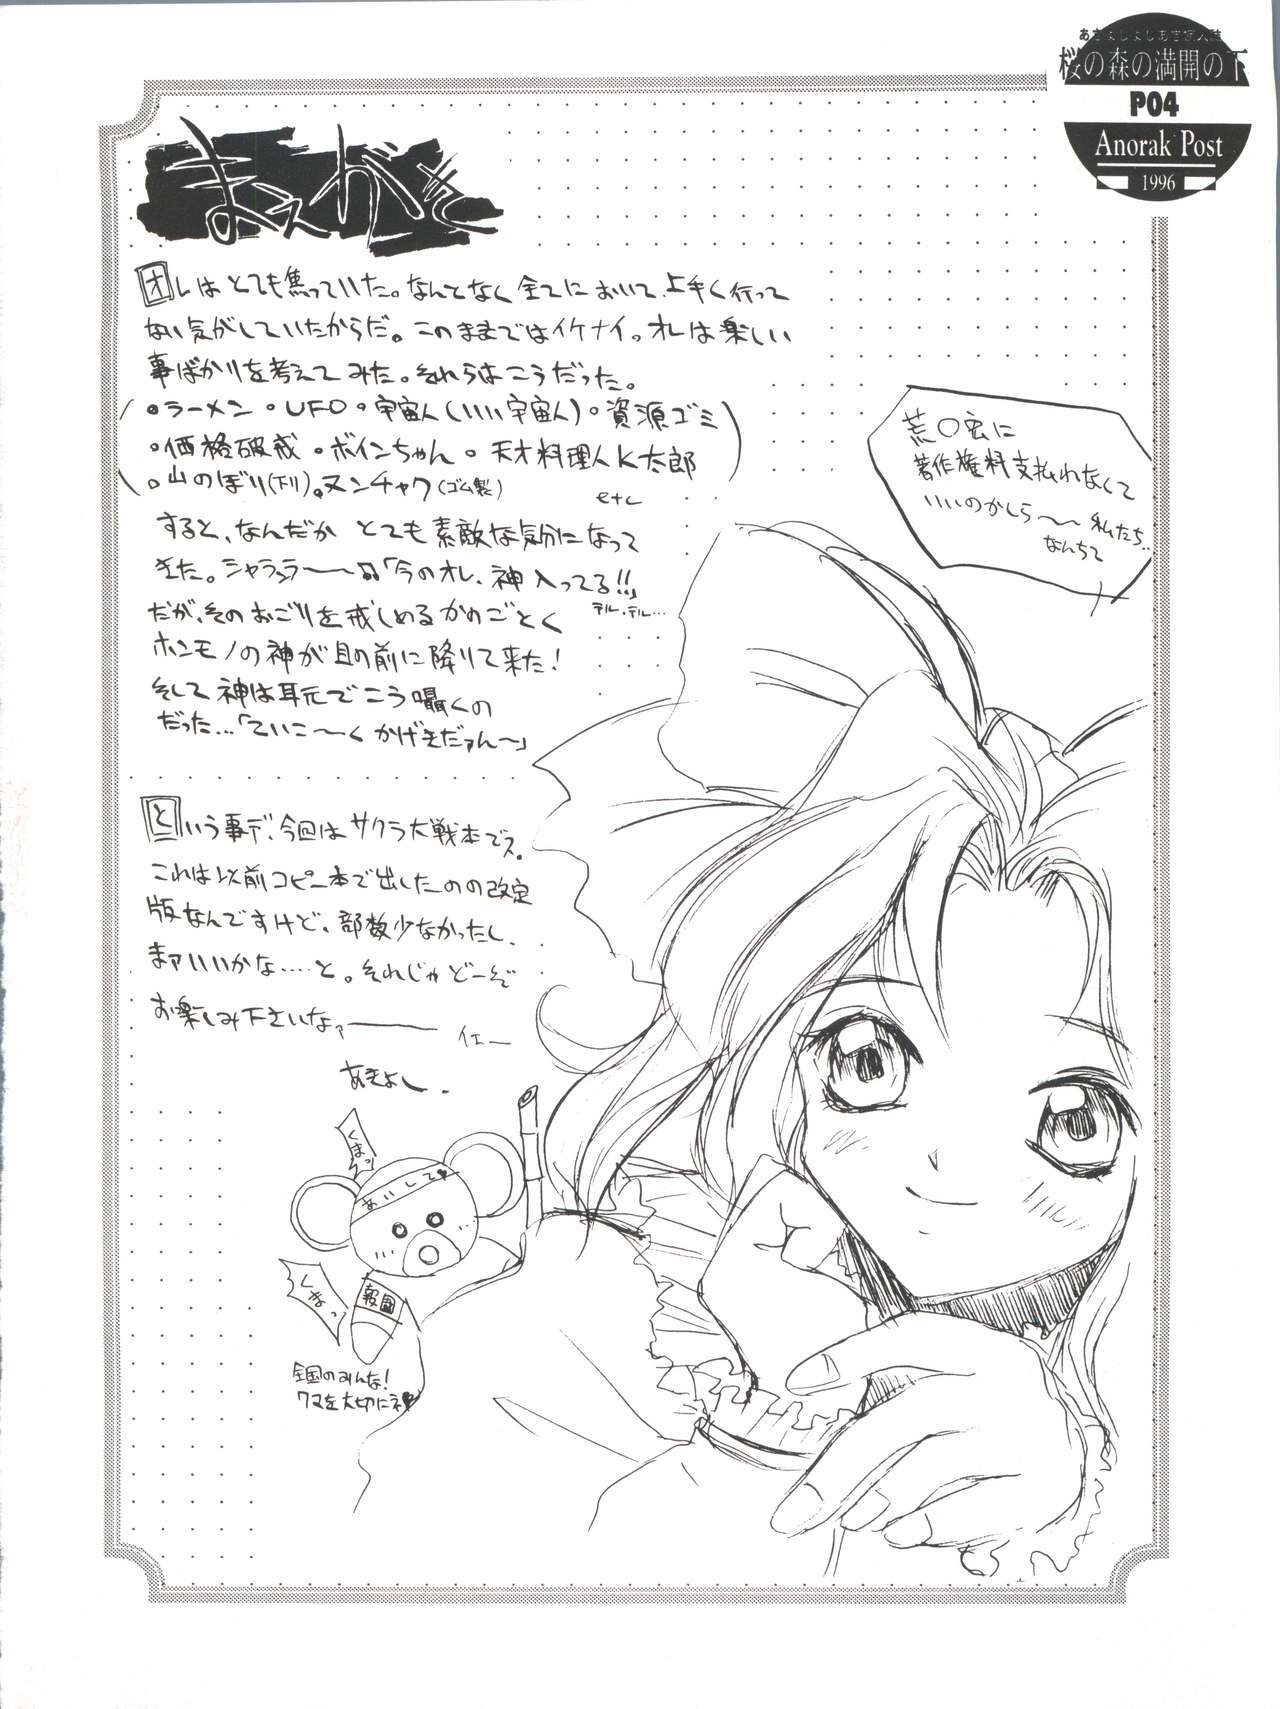 桜の森の満開の下
P04
Anorak Post
1996
まえがき
オレはとても焦っていた。なんとなく全てにおいて、上手く行って
ない気がしていたからだ。このままではイケナイっ、オレは楽しい
事ばかりを考えてみた。それらはこうだった。
(・ラーメン・UFO・宇宙人(いい宇宙人)・資源ゴミ
・価格破戒・ボインちゃん・天才料理人K太郎
・山のぼり(下り)。ヌンチャク(ゴム製) etc)
すると、なんだか とても素敵な気分になって
きた。シャララ〜〜♫「今のオレ、神入ってる!!」
テル、テル…
だが、そのおごりを戒しめるかのごとく
ホンモノの神が目の前に降りて来た!
そして神は耳元でこう囁くの
だった…「ていこ〜〜く かげきだァん〜」
という事デ、今回はサクラ大戦本でス。
これは以前コピー本で出したのの改定
版なんですけど、部数少なかったし、
まァいいかな……と。それじゃどーぞ
お楽しみ下さいなァ――― イエー
あきよし.
荒〇宏に
著作権料支払わなくて
いいのかしら〜〜 私たち..
なんちて
くまっ
あいして♥
くまっ
報國
全国のみんな!
クマを大切にネ♥